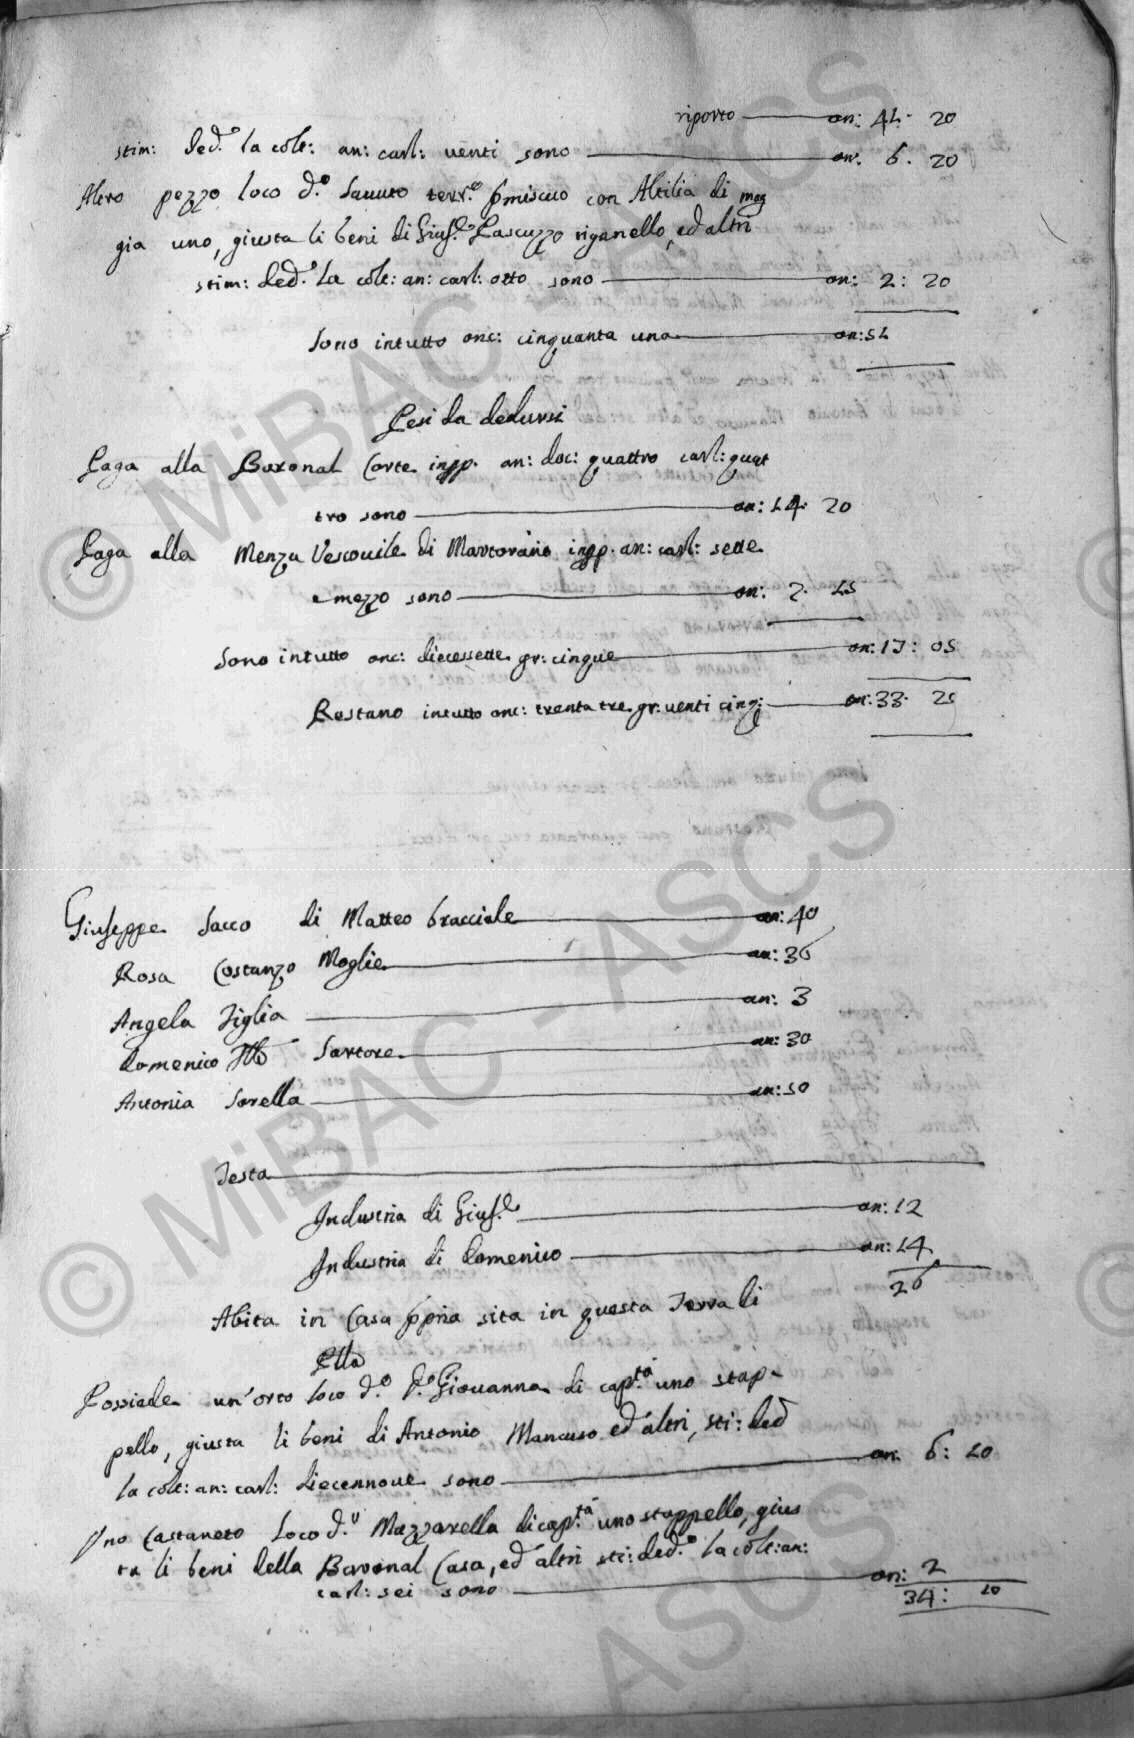 riporto on: 41. 20
stim: ded.º la colt: an: carl: venti sono on: 6. 20
Altro pezzo loco d.º Savuto terr.º pmiscuo con Altilia di mog
gia uno, giusta li beni di Gius.e Pascuzzo riganello, ed altri
stim: ded.º la colt: an: carl: otto sono on: 2: 20
Sono intutto onc: cinquanta una on: 51
Pesi da dedursi
Paga alla Baronal Corte in pp. an: doc: quattro carl: quat
tro sono on: 14. 20
Paga alla Menza Vescovile di Martorano in pp. an: carl: sette
e mezzo sono on: 2. 15
Sono intutto onc: diecessette gr: cinque on: 17: 05
Restano intutto onc: trenta tre gr: venti cinq: on: 33. 25
Giuseppe Sacco di Matteo bracciale an: 40
Rosa Costanzo Moglie an: 36
Angela Figlia an: 3
Domenico Sartore an: 30
Antonia Sorella an: 50
Testa
Industria di Gius.e on: 12
Industria di Domenico on: 14
26
Abita in Casa ppria sita in questa Terra di
Plla
Possiede un'orto loco d.º S. Giovanna di cap.tà uno stop-
pello, giusta li beni di Antonio Mancuso ed altri, sti: ded
la colt: an: carl: diecennove sono on. 6: 10
Uno Castaneto loco d.º Mazzarella di cap.tà uno stoppello, gius
ta li beni della Baronal Casa, ed altri sti: ded.º la colt: an:
carl: sei sono on: 2
34: 10
© MiBAC - ASCS
© MiBAC - ASCS